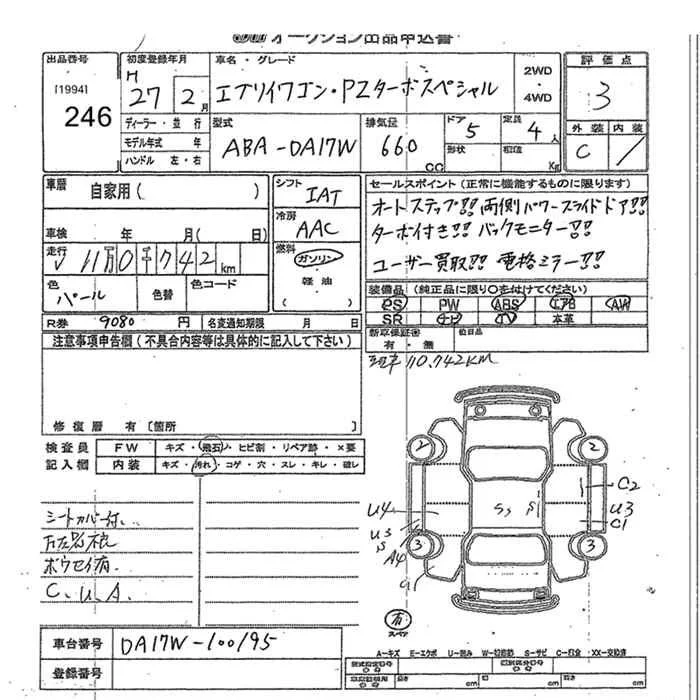 オークション出品申込書
出品番号
[1994]
246
初度登録年月
H
27年 2月
車名・グレード
エブリイワゴン・PZターボスペシャル
2WD
・
4WD
評価点
3
外装 内装
C
ディーラー・並行
モデル年式 年
ハンドル 左・右
型式
ABA-DA17W
排気量
660
cc
ドア
5
形状
定員
4人
積量
Kg
車歴
自家用( )
シフト
IAT
セールスポイント(正常に機能するものに限ります)
オートステップ!! 両側パワースライドドア!!
ターボ付き!! バックモニター!!
ユーザー買取!! 電格ミラー!!
車検 年 月( 日)
冷房
AAC
走行
✓ 11万0千742km
燃料
ガソリン
・
軽油
色
パール
色替
色コード
装備品(純正品に限り○を付けてください)
PS PW ABS エアB AW
SR ナビ TV 本革
R券 9080円 名変通知期限 月 日
新車保証書
有・無
欠品目
注意事項申告欄(不具合内容等は具体的に記入して下さい)
110.742KM
修復歴 有〔箇所
検査員
記入欄
FW キズ・飛石・ヒビ割・リペア跡・×要
内装 キズ・汚れ・コゲ・穴・スレ・キレ・破レ
シートカバー付.
ボウセイ有.
C. U. A.
2
2
3
3
C2
U3
C1
U4
U3
S
A4
S
S
有
スペア
車台番号 DA17W-100195
登録番号
A-キズ E-エクボ U-凹み W-切修跡 S-サビ C-腐食 XX-交換済
cm
cm
cm